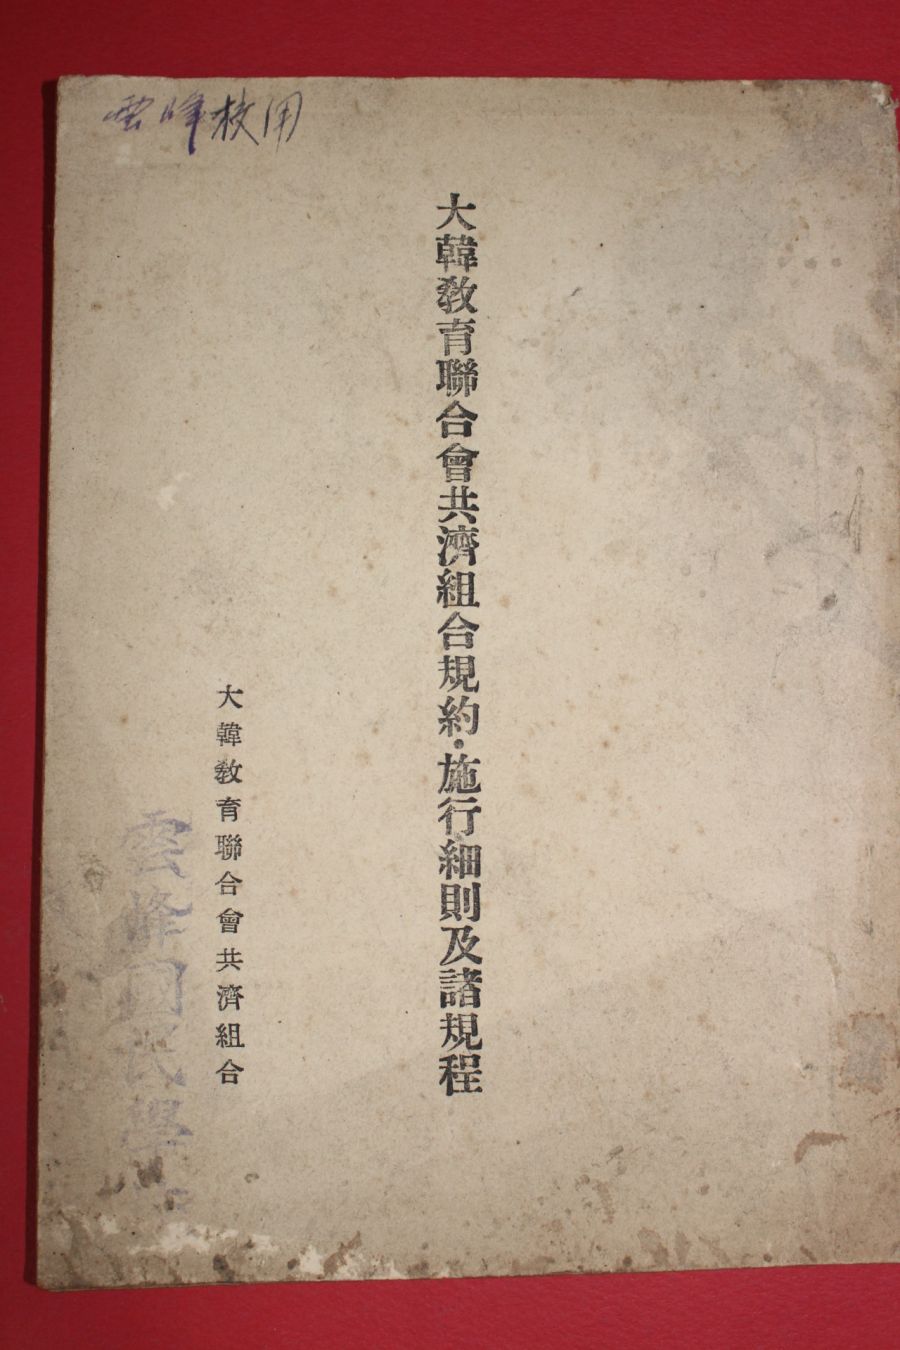 雲峰校用
大韓敎育聯合會共濟組合規約·施行細則及諸規程
大韓敎育聯合會共濟組合
雲峰國民學